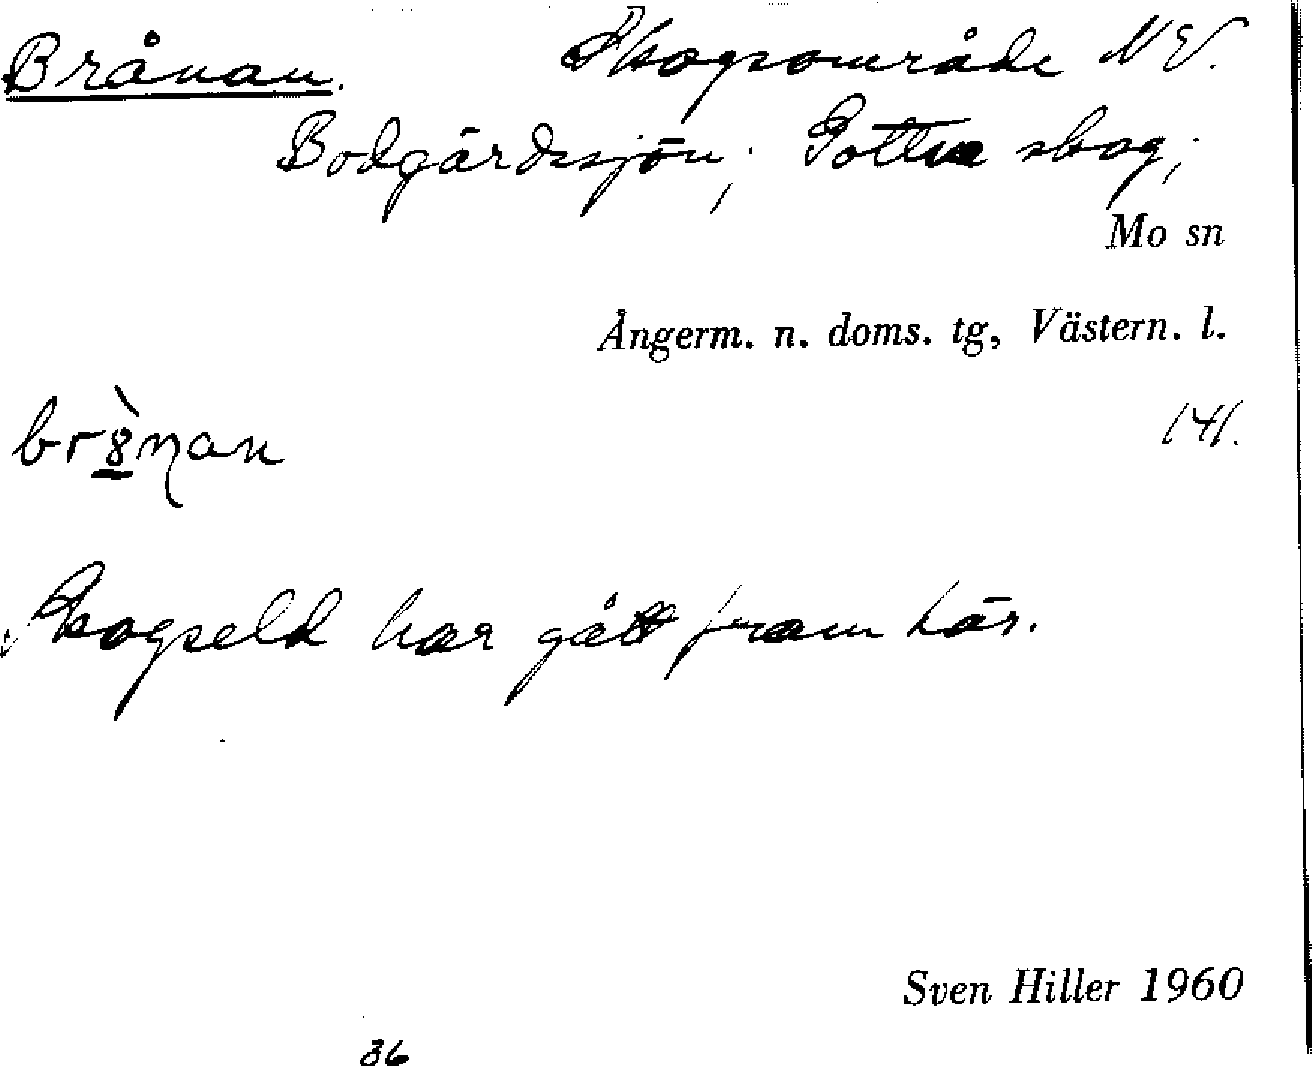 Brånan. Skogsområde NV.
Bodgärdssjön; Gottne skog;
Mo sn
Ångerm. n. doms. tg, Västern. l.
141.
Skogseld har gått fram här.
Sven Hiller 1960
36